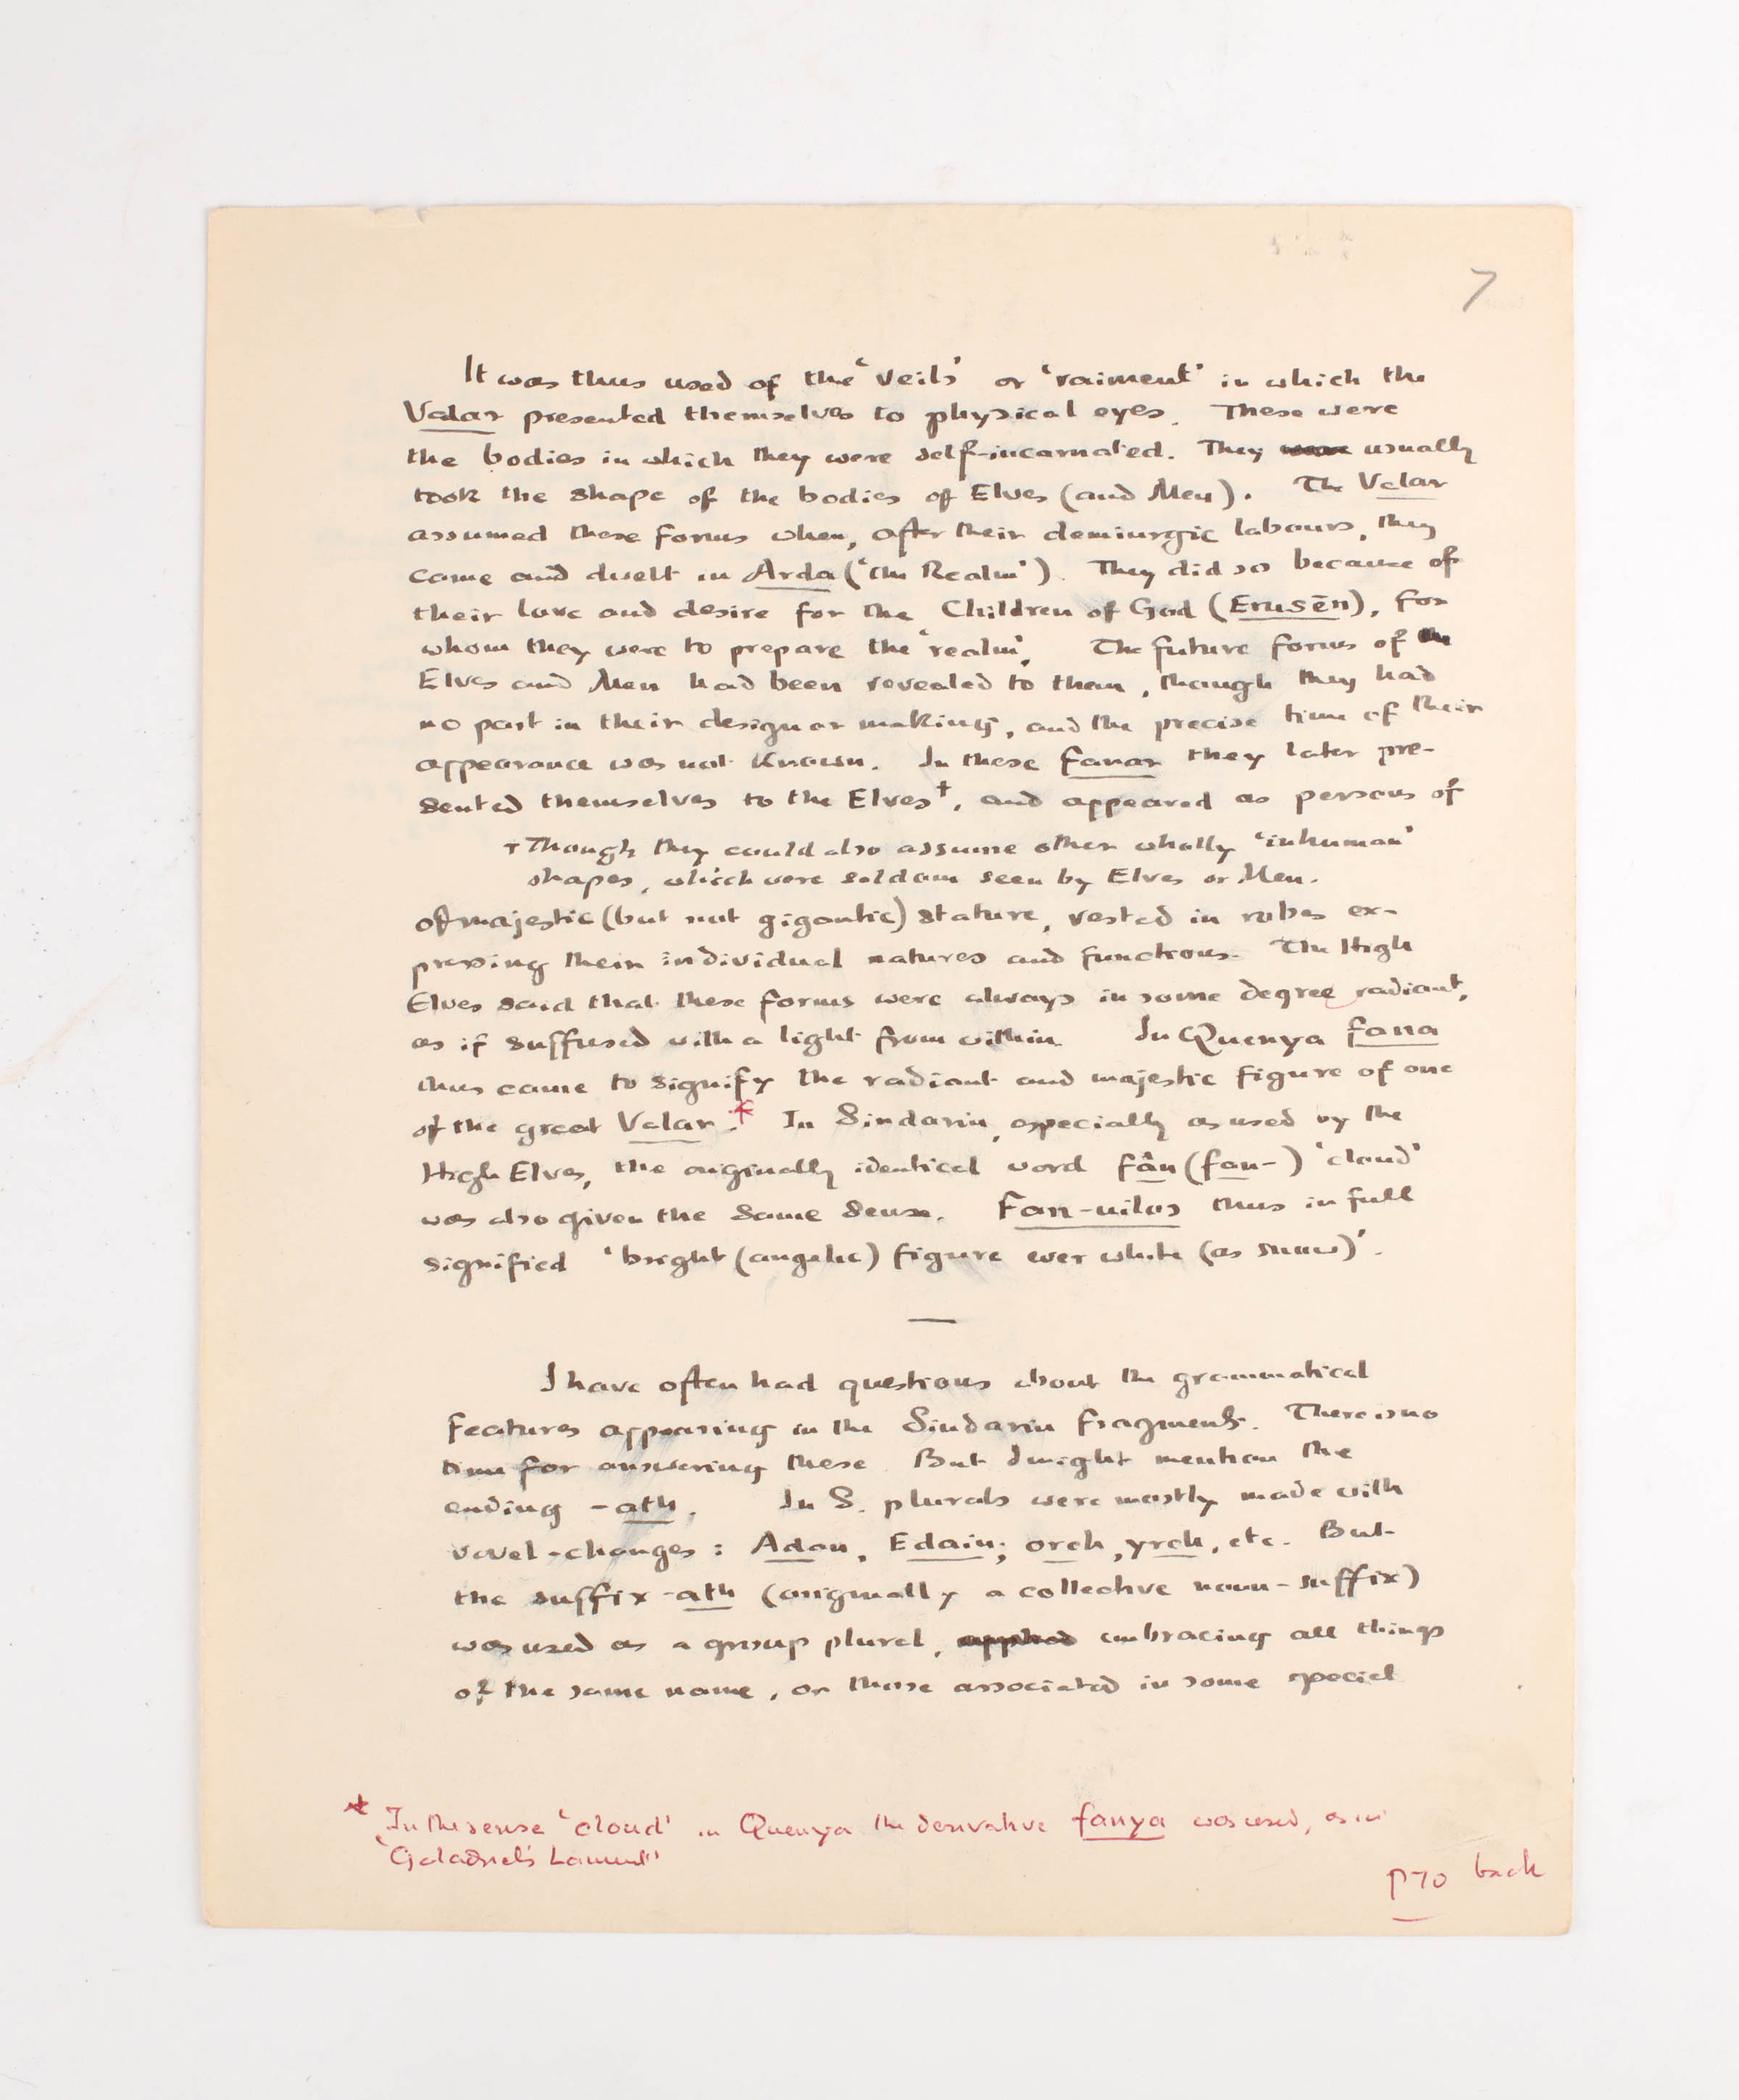 7
It was thus used of the 'veils' or 'raiment' in which the
Valar presented themselves to physical eyes. These were
the bodies in which they were self-incarnated. They were usually
took the shape of the bodies of Elves (and Men). The Valar
assumed these forms when, after their demiurgic labours, they
came and dwelt in Arda ('the Realm'). They did so because of
their love and desire for the Children of God (Erusēn), for
whom they were to prepare the 'realm'. The future forms of the
Elves and Men had been revealed to them, though they had
no part in their design or making, and the precise time of their
appearance was not known. In these fanar they later pre-
sented themselves to the Elves†, and appeared as persons of
† Though they could also assume other wholly 'inhuman'
shapes, which were seldom seen by Elves or Men.
of majestic (but not gigantic) stature, vested in robes ex-
pressing their individual natures and functions. The High
Elves said that these forms were always in some degree radiant,
as if suffused with a light from within. In Quenya fana
thus came to signify the radiant and majestic figure of one
of the great Valar.* In Sindarin, especially as used by the
High Elves, the originally identical word fân (fan-) 'cloud'
was also given the same sense. Fan-uilos thus in full
signified 'bright (angelic) figure ever white (as snow)'.
—
I have often had questions about the grammatical
features appearing in the Sindarin fragments. There is no
time for answering these. But I might mention the
ending -ath. In S. plurals were mostly made with
vowel-changes: Adan, Edain; orch, yrch, etc. But
the suffix -ath (originally a collective noun-suffix)
was used as a group plural, applied embracing all things
of the same name, or those associated in some special
* In the sense 'cloud' in Quenya the derivative fanya was used, as in
'Galadriel's Lament'
PTO back